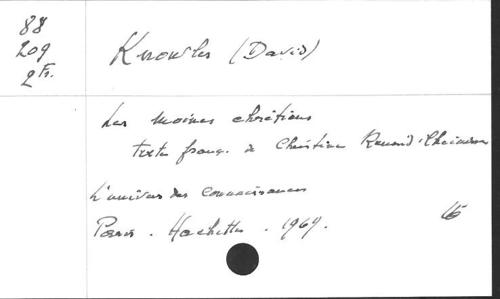 88
209
2 Fr.
Knowles (David)
Les moines chrétiens
texte franç. de Christine Renard-Cheinisse
L'univers des connaissances
Paris. Hachette. 1969.